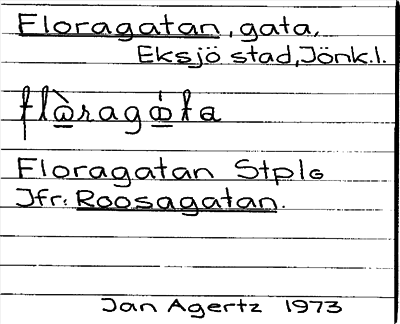 Floragatan, gata,
Eksjö stad, Jönk.l.
Floragatan Stplo
Jfr. Roosagatan.
Jan Agertz 1973